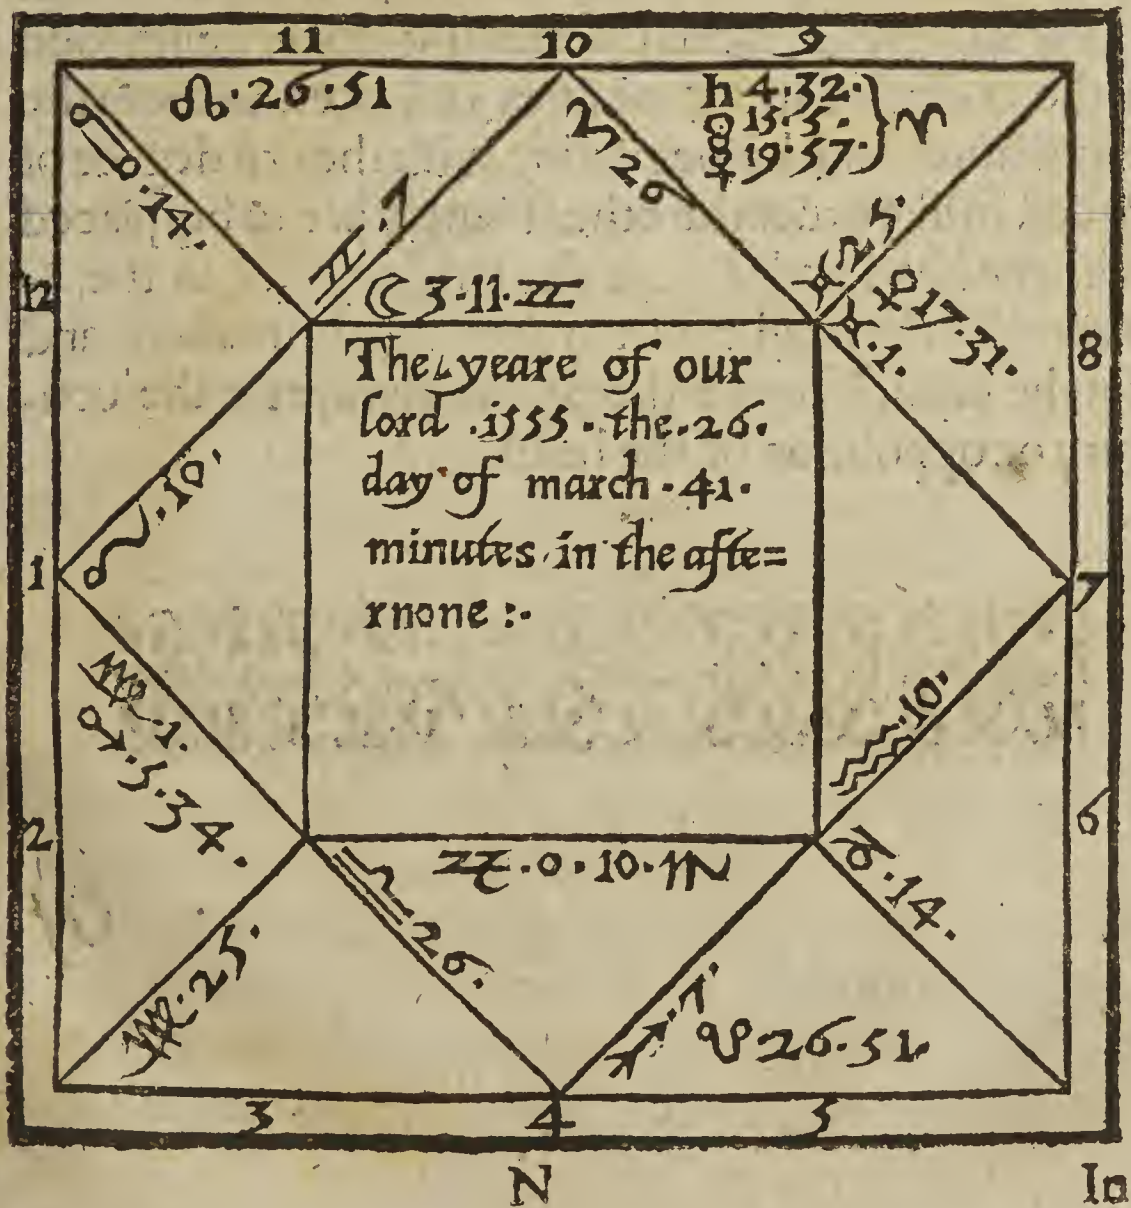 11 10 9
☊·26·51
♄ 4·32·
☉ 15·5·
☿ 19·57·
♈
♋·14·
♊·7
♉ 26
♈ 25·
12
☾ 3·11·♊
♓·1·
♀ 17·31·
8
The yeare of our
lord .1555· the·26·
day of march·41·
minutes in the afte=
rnone :·
♌·10·
1
7
♍·1·
♂·5·34·
♒·10·
2
6
♃·0·10·♏
♑·14·
♎ 26·
♍·25·
♐·7·
☋·26·51·
3 4 5
N
In